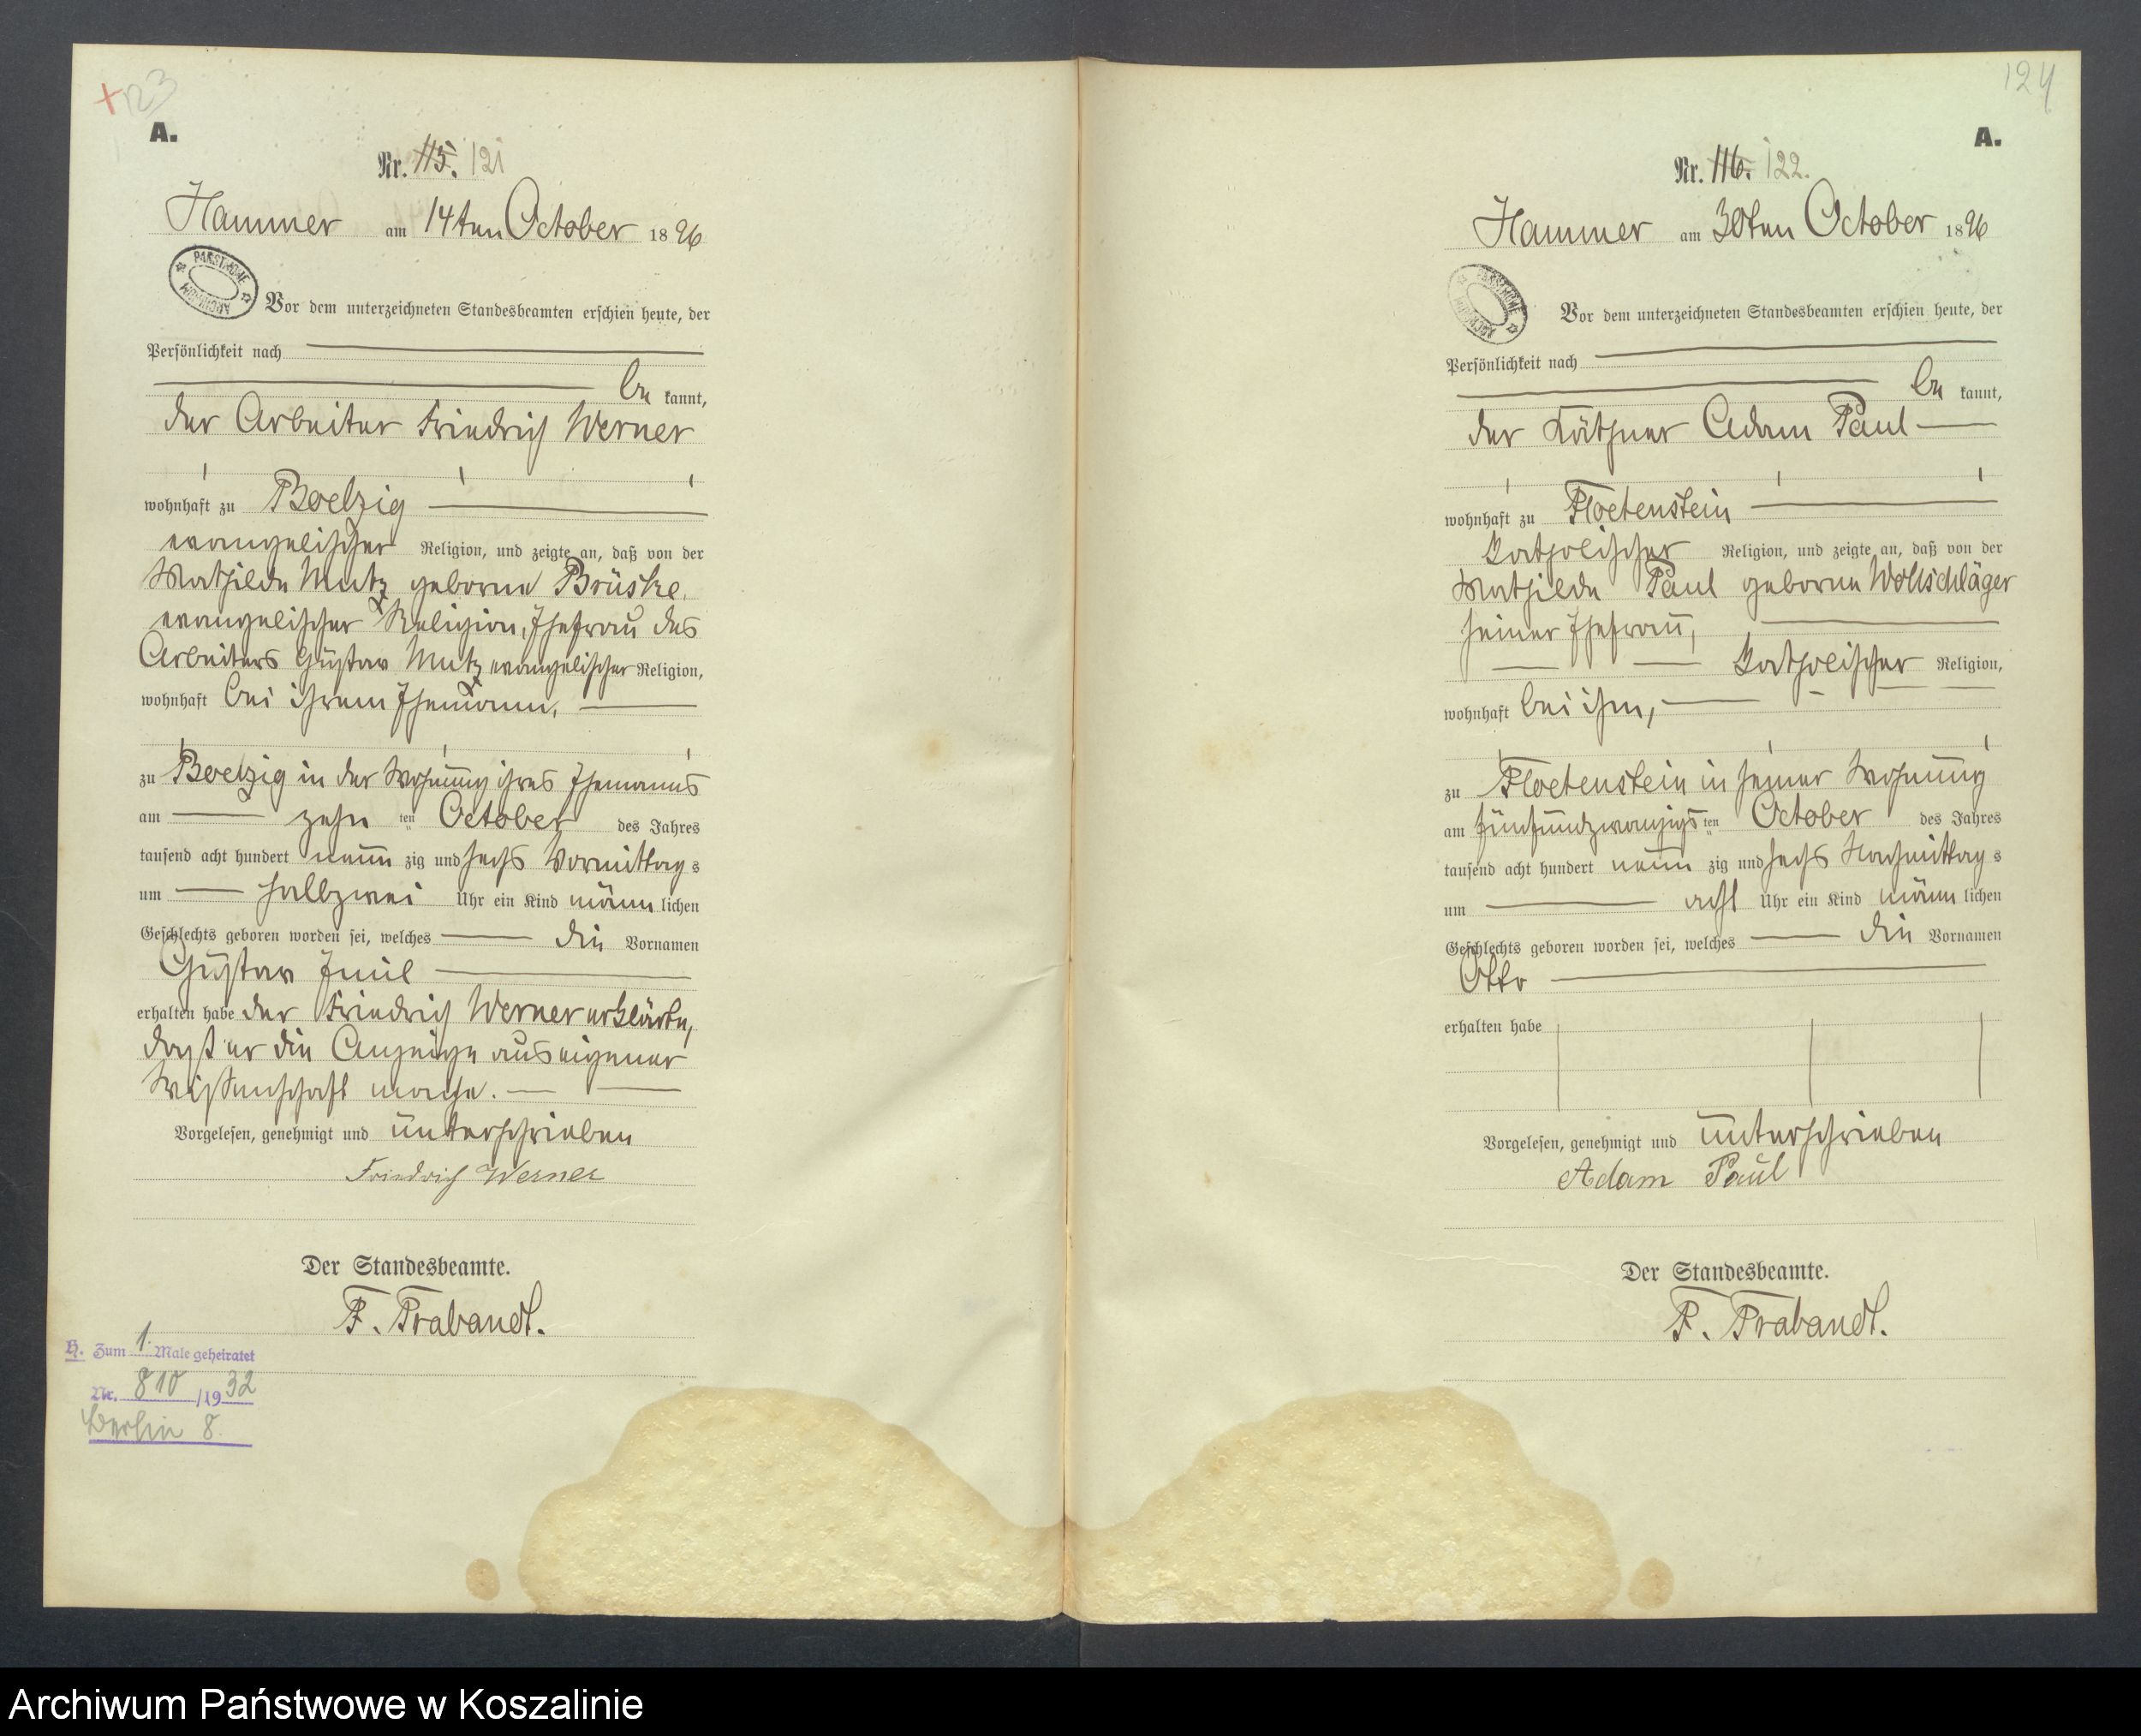 + 123
A.
Nr. 115. 121
Hammer am 14ten October 1896
PAŃSTWOWE ARCHIWUM
Vor dem unterzeichneten Standesbeamten erschien heute, der
Persönlichkeit nach
be kannt,
der Arbeiter Friedrich Werner
wohnhaft zu Boelzig
evangelischer Religion, und zeigte an, daß von der
Mathilde Mutz geborne Brüske,
evangelischer Religion, Ehefrau des
Arbeiters Gustav Mutz evangelischer Religion,
wohnhaft bei ihrem Ehemann,
zu Boelzig in der Wohnung ihres Ehemanns
am zehn ten October des Jahres
tausend acht hundert neun zig und sechs Vormittag s
um halbzwei Uhr ein Kind männ lichen
Geschlechts geboren worden sei, welches die Vornamen
Gustav Emil
erhalten habe der Friedrich Werner erklärte,
daß er die Anzeige aus eigener
Wissenschaft mache.
Vorgelesen, genehmigt und unterschrieben
Friedrich Werner
Der Standesbeamte.
F. Prabandt.
H. Zum 1. Male geheiratet
Nr. 810 /1932
Berlin 8.
124
A.
Nr. 116. 122.
Hammer am 30ten October 1896
PAŃSTWOWE ARCHIWUM
Vor dem unterzeichneten Standesbeamten erschien heute, der
Persönlichkeit nach
be kannt,
der Käthner Adam Paul
wohnhaft zu Floetenstein
katholischer Religion, und zeigte an, daß von der
Mathilde Paul geborne Wollschläger
seiner Ehefrau,
katholischer Religion,
wohnhaft bei ihm,
zu Floetenstein in seiner Wohnung
am fünfundzwanzigs ten October des Jahres
tausend acht hundert neun zig und sechs Nachmittag s
um acht Uhr ein Kind männ lichen
Geschlechts geboren worden sei, welches die Vornamen
Otto
erhalten habe
Vorgelesen, genehmigt und unterschrieben
Adam Paul
Der Standesbeamte.
F. Prabandt.
Archiwum Państwowe w Koszalinie